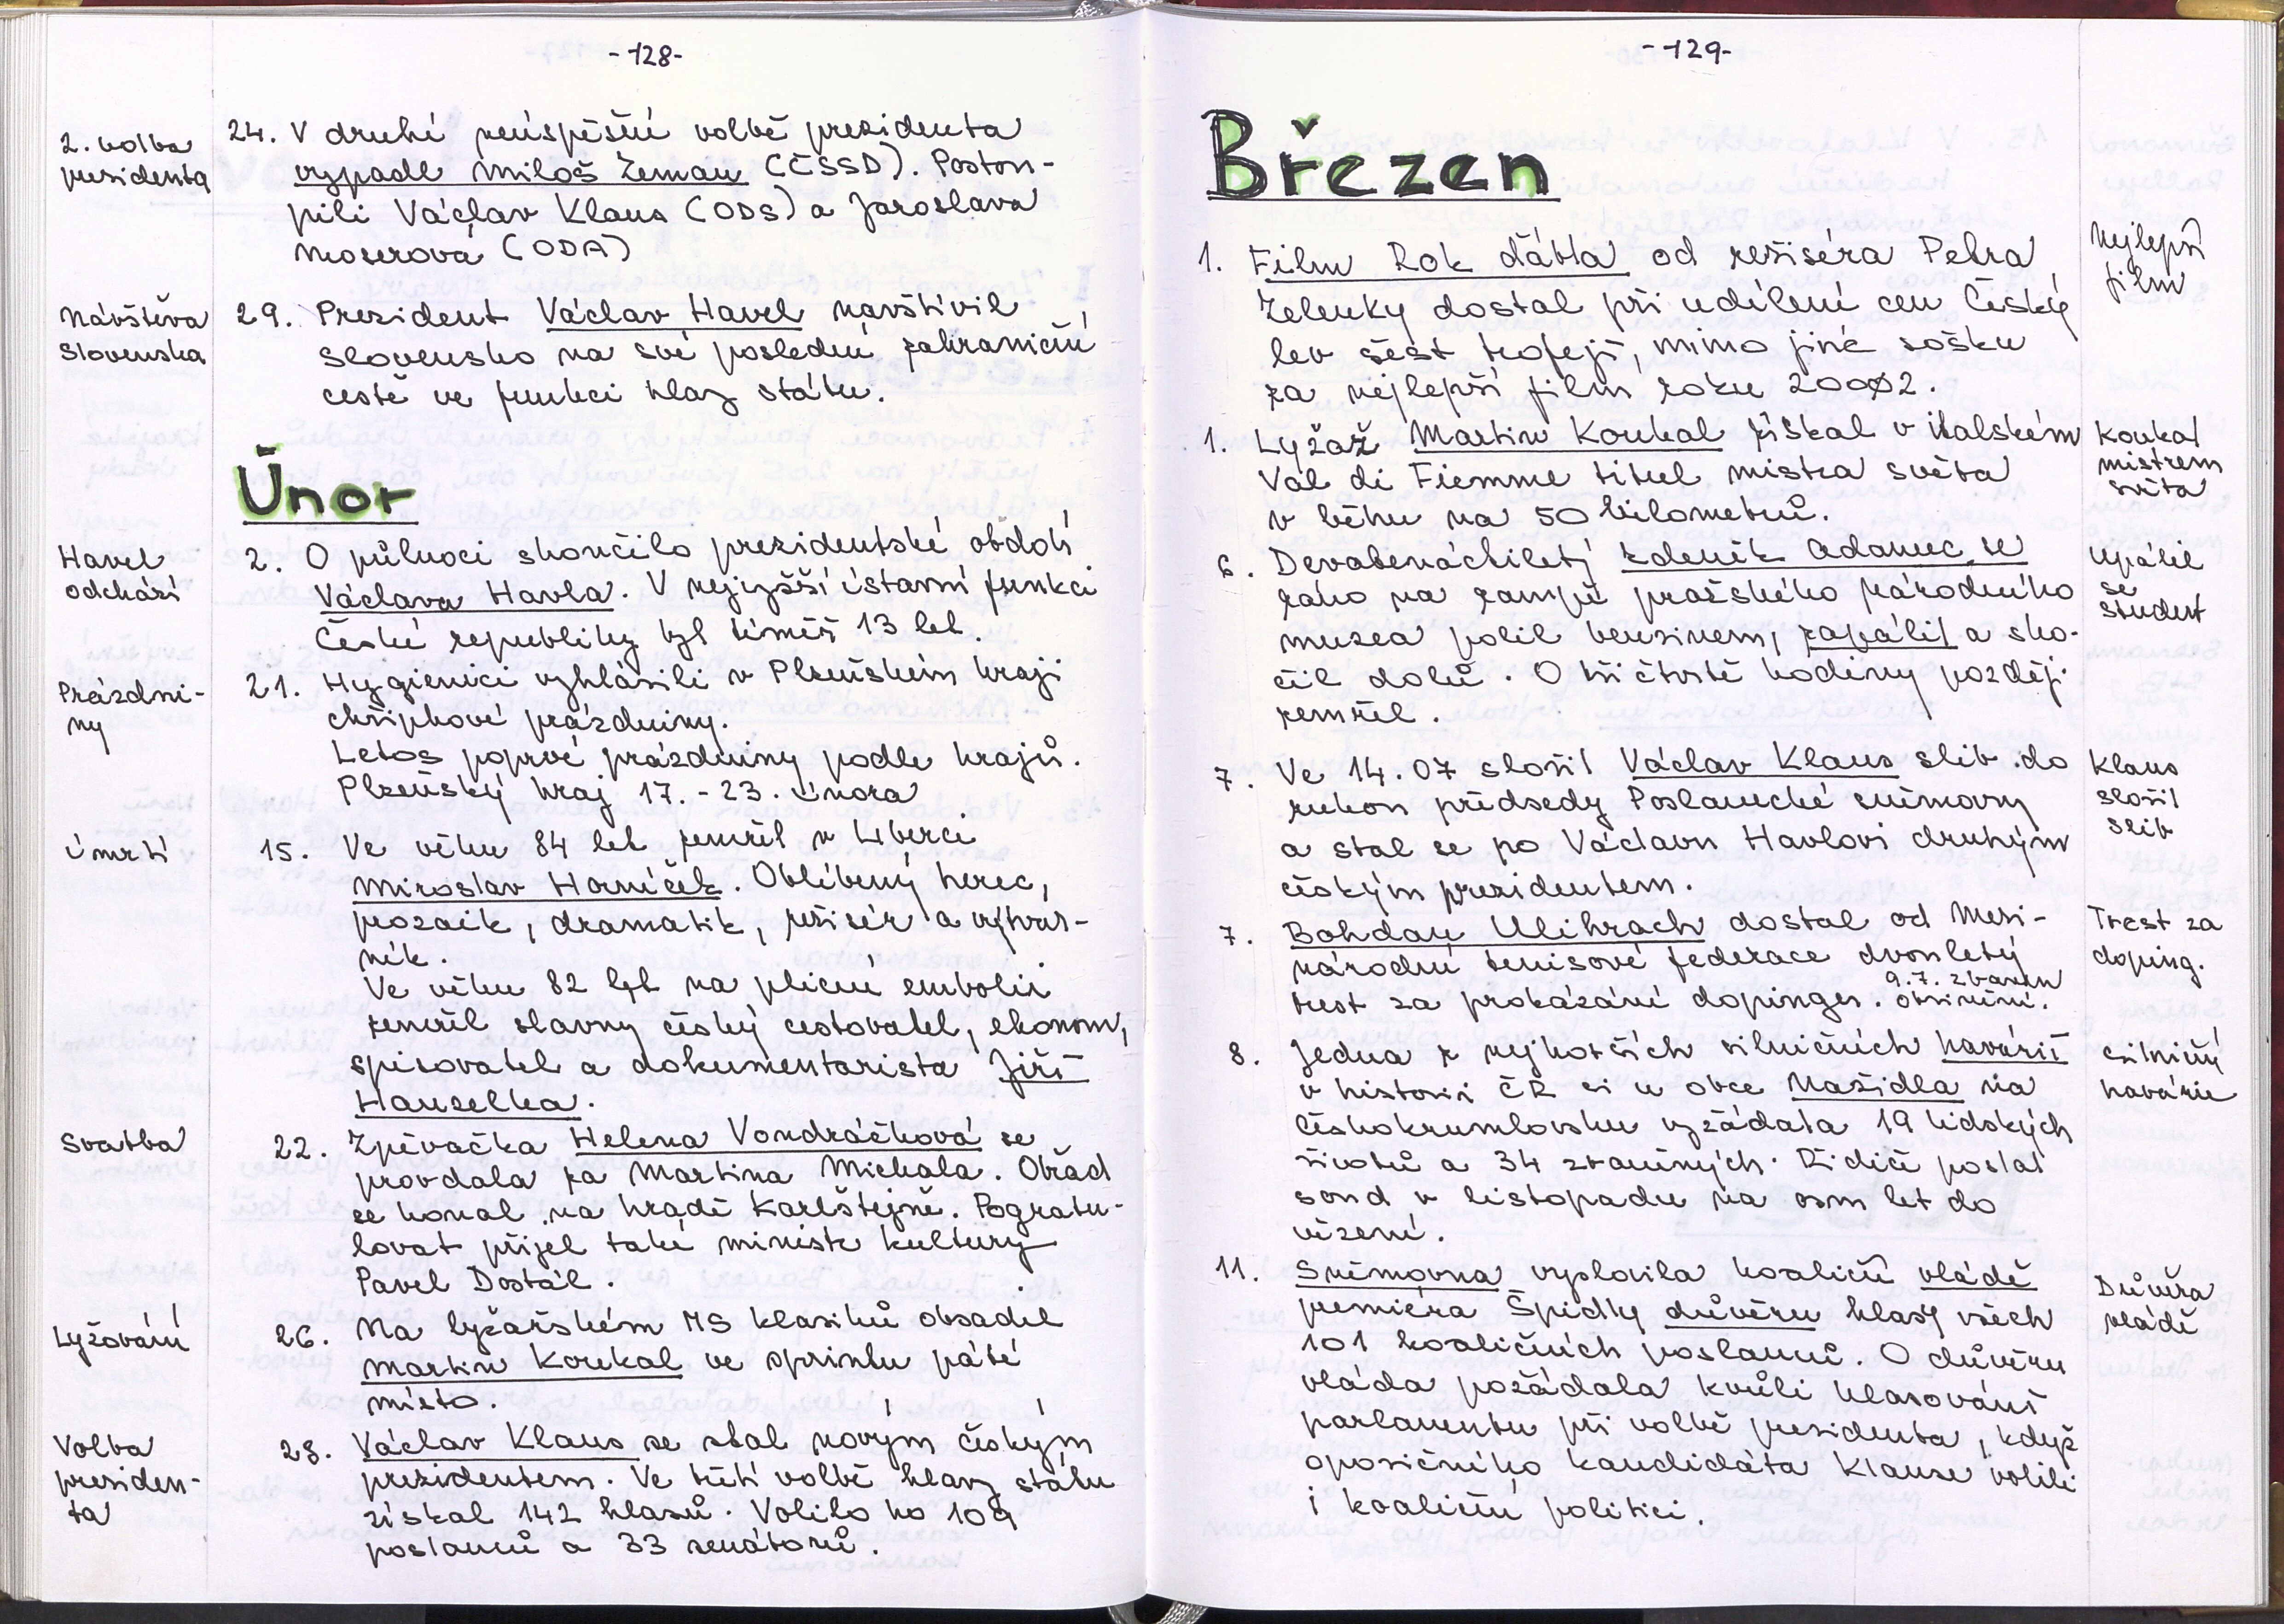 -128-
2. volba
presidenta
24. V druhé neúspěšné volbě prezidenta
vypadl Miloš Zeman (ČSSD). Postou-
pili Václav Klaus (ODS) a Jaroslava
Moserová (ODA)
Návštěva
Slovenska
29. Prezident Václav Havel navštívil
Slovensko na své poslední zahraniční
cestě ve funkci hlavy státu.
Únor
Havel
odchází
2. O půlnoci skončilo prezidentské období
Václava Havla. V nejvyšší ústavní funkci
České republiky byl téměř 13 let.
Prázdni-
ny
21. Hygienici vyhlásili v Plzeňském kraji
chřipkové prázdniny.
Letos poprvé prázdniny podle krajů.
Plzeňský kraj 17. - 23. února
Úmrtí
15. Ve věku 84 let zemřel v Liberci
Miroslav Horníček. Oblíbený herec,
prozaik, dramatik, režisér a výtvar-
ník.
Ve věku 82 let na plicní embolii
zemřel slavný český cestovatel, ekonom,
spisovatel a dokumentarista Jiří
Hanzelka.
Svatba
22. Zpěvačka Helena Vondráčková se
provdala za Martina Michala. Obřad
se konal na hradě Karlštejně. Pogratu-
lovat přijel také ministr kultury
Pavel Dostál.
Lyžování
26. Na lyžařském MS klasiků obsadil
Martin Koukal ve sprintu páté
místo.
Volba
presiden-
ta
28. Václav Klaus se stal novým českým
prezidentem. Ve třetí volbě hlavy státu
získal 142 hlasů. Volilo ho 109
poslanců a 33 senátorů.
-129-
Březen
1. Film Rok ďábla od režiséra Petra
Zelenky dostal při udělení cen Český
lev šest trofejí, mimo jiné sošku
za nejlepší film roku 2002.
Nejlepší
film
1. Lyžař Martin Koukal získal v italském
Val di Fiemme titul mistra světa
v běhu na 50 kilometrů.
Koukal
mistrem
světa
6. Devatenáctiletý Zdeněk Adamec se
ráno na rampě pražského Národního
musea polil benzinem, zapálil a sko-
čil dolů. O tři čtvrtě hodiny později
zemřel.
Upálil
se
student
7. Ve 14.07 složil Václav Klaus slib do
rukou předsedy Poslanecké sněmovny
a stal se po Václavu Havlovi druhým
českým prezidentem.
Klaus
složil
slib
7. Bohdan Ulihrach dostal od Mezi-
národní tenisové federace dvouletý
trest za prokázání dopingu. 9.7. zbaven
obvinění.
Trest za
doping.
8. Jedna z nejhorších silničních havárií
v historii ČR si u obce Nažidla na
Českokrumlovsku vyžádala 19 lidských
životů a 34 zraněných. Řidiče poslal
soud v listopadu na osm let do
vězení.
silniční
havárie
11. Sněmovna vyslovila koaliční vládě
premiéra Špidly důvěru hlasy všech
101 koaličních poslanců. O důvěru
vláda požádala kvůli hlasování
parlamentu při volbě presidenta, když
oposičního kandidáta Klause volili
i koaliční politici.
Důvěra
vládě